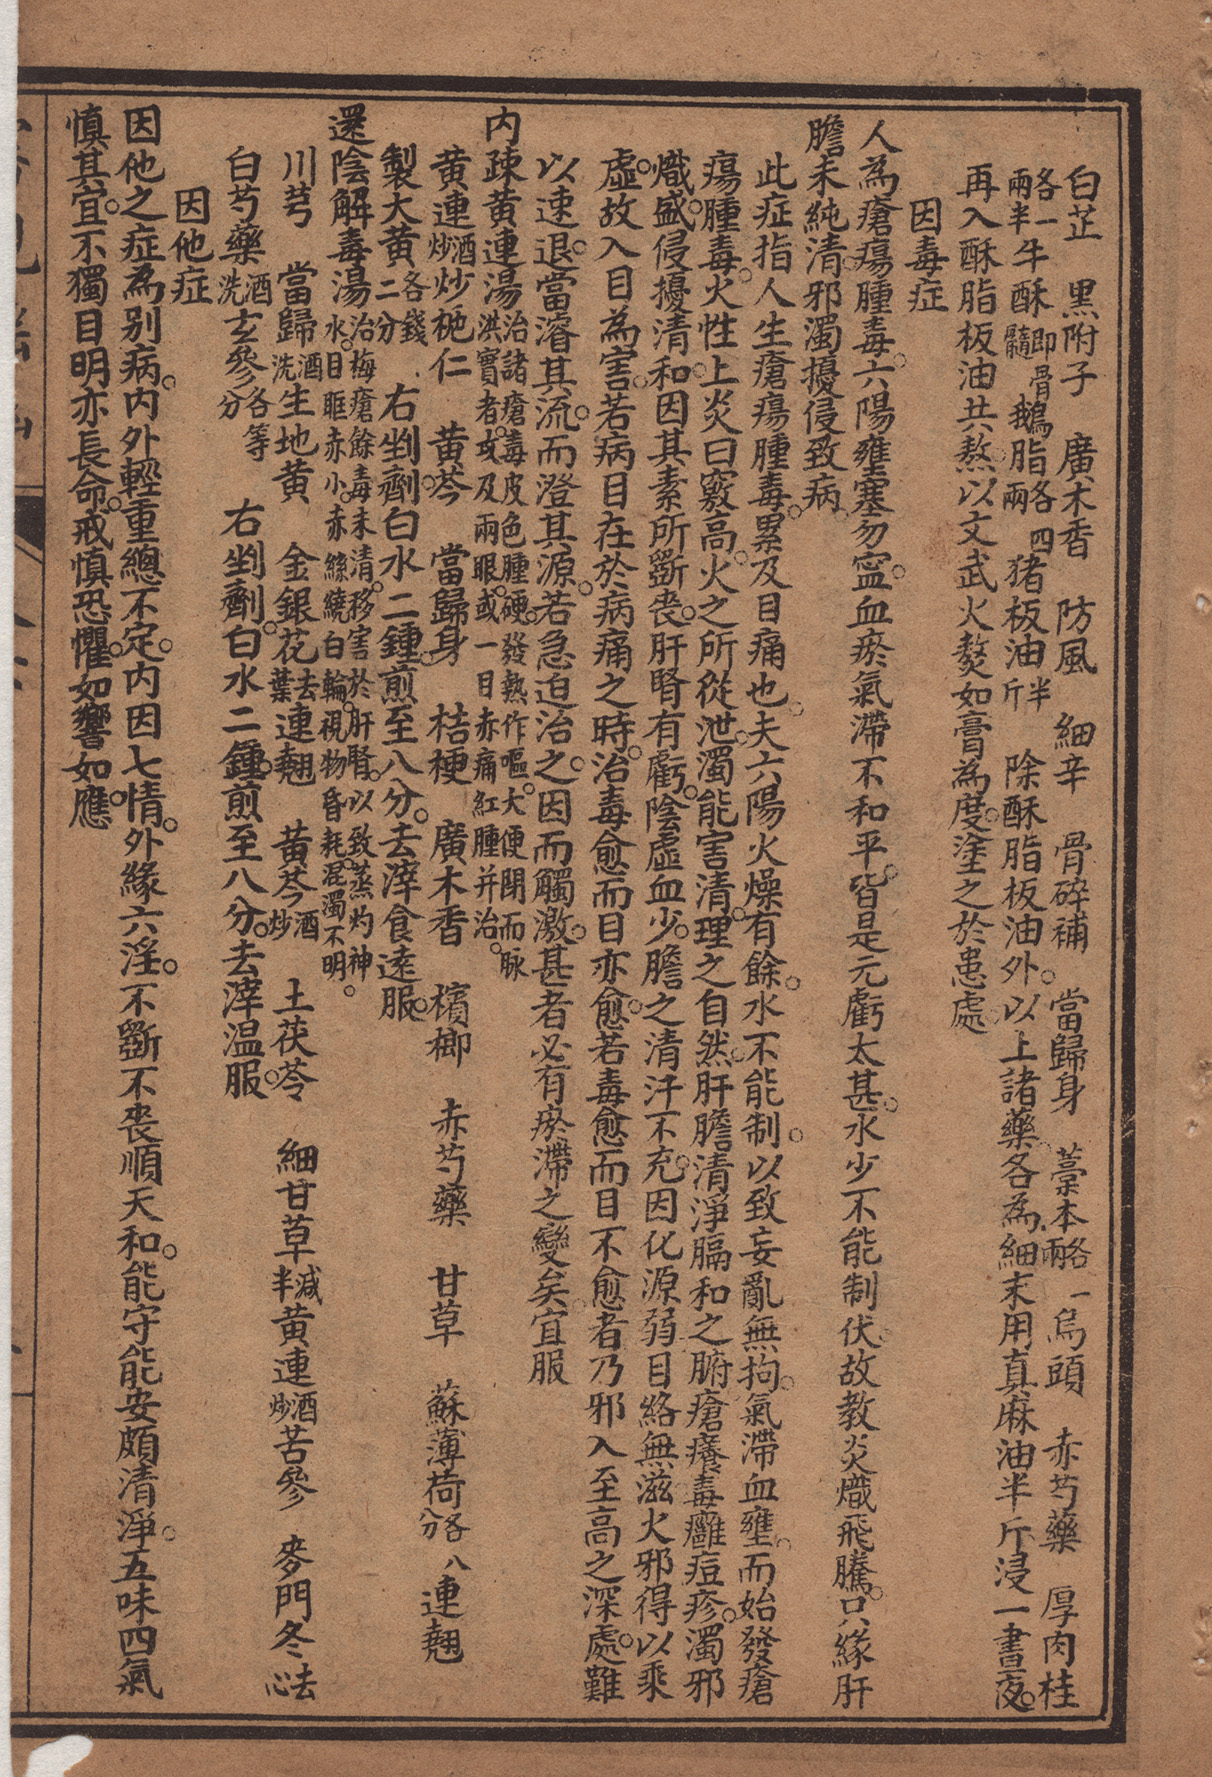 白芷　黑附子　廣木香　防風　細辛　骨碎補　當歸身　藁本各一兩　烏頭　赤芍藥　厚肉桂
各一兩半　牛酥即骨髓　鵝脂各四兩　猪板油半斤　除酥脂板油外。以上諸藥各為細末用真麻油半斤浸一晝夜。
再入酥脂板油共熬。以文武火熬如膏為度。塗之於患處
因毒症
人為瘡瘍腫毒。六陽雍塞勿寍。血瘀氣滯不和平。皆是元虧太甚。水少不能制伏故教炎熾飛騰。只緣肝
膽未純清。邪濁擾侵致病。
此症指人生瘡瘍腫毒。累及目痛也。夫六陽火燥有餘。水不能制。以致妄亂無拘。氣滯血壅。而始發瘡
瘍腫毒。火性上炎曰竅高。火之所從泄。濁能害清。理之自然。肝膽清淨膈和之腑。瘡癢毒癰痘疹。濁邪
熾盛。侵擾清和。因其素所斲喪。肝腎有虧。陰虛血少。膽之清汗不充。因化源弱目絡無滋火邪得以乘
虛。故入目為害。若病目在於病痛之時。治毒愈而目亦愈。若毒愈而目不愈者乃邪入至高之深處。難
以速退。當濬其流。而澄其源。若急迫治之。因而觸激。甚者必有瘀滯之變矣。宜服
内疎黄連湯治諸瘡毒皮色腫硬。發熱作嘔。大便閉而脉洪實者。攻及兩眼。或一目赤痛紅腫并治。
黄連酒炒炒梔仁　黄芩　當歸身　桔梗　廣木香　檳榔　赤芍藥　甘草　蘇薄荷各八分連翹
製大黄各二錢二分　右剉劑。白水二鍾。煎至八分。去滓食遠服。
還陰解毒湯治梅瘡餘毒未清。移害於肝腎。以致蒸灼神水。目眶赤小。赤絲繞白輪。視物昏耗。混濁不明。
川芎　當歸酒洗生地黄　金銀花去葉連翹　黄芩酒炒　土茯苓　細甘草減半黄連酒炒苦參　麥門冬去心
白芍藥酒洗玄參各等分　右剉劑。白水二鍾。煎至八分。去滓温服。
因他症
因他之症為别病。内外輕重總不定。内因七情。外緣六淫。不斲不喪順天和。能守能安頗清淨。五味四氣
慎其宜。不獨目明亦長命。戒慎恐懼。如響如應